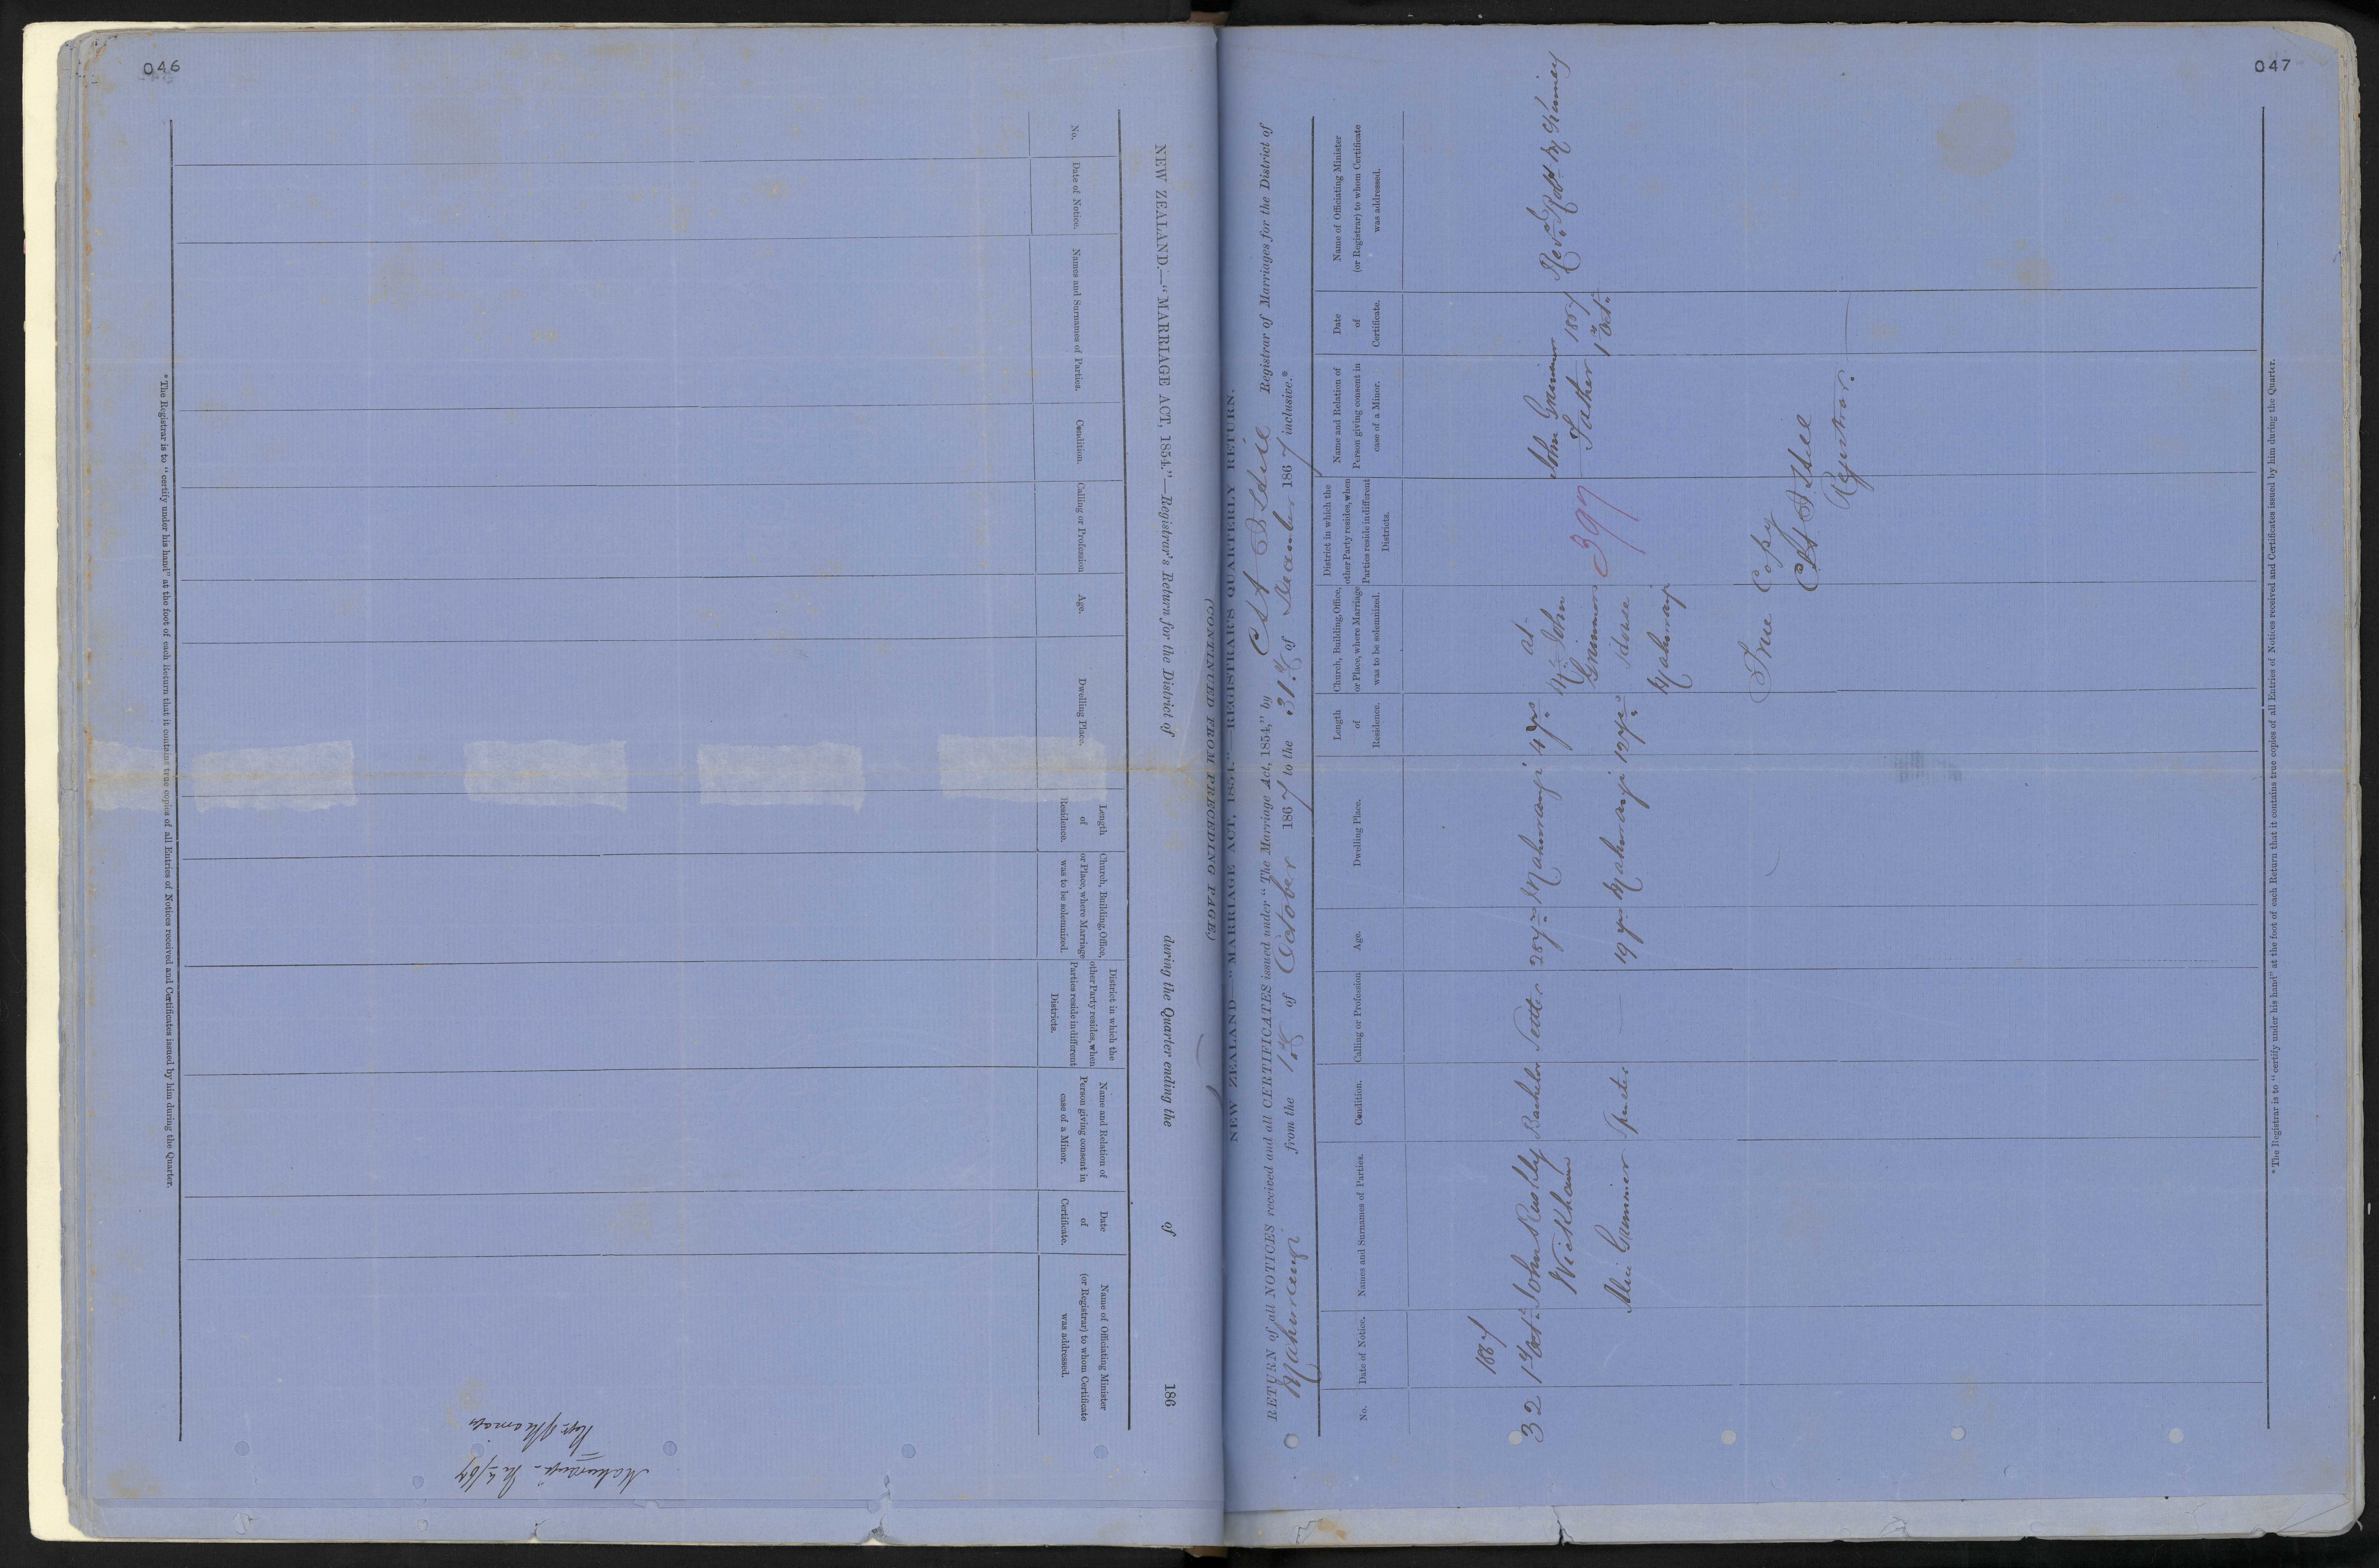 046
NEW ZEALAND.—"MARRIAGE ACT, 1854."—Registrar's Return for the District of during the Quarter ending the of 186
No.
Date of Notice.
Names and Surnames of Parties.
Condition.
Calling or Profession
Age.
Dwelling Place.
Length
of
Residence.
Church, Building, Office,
or Place, where Marriage
was to be solemnized.
District in which the
other Party resides, when
Parties reside in different
Districts.
Name and Relation of
Person giving consent in
case of a Minor.
Date
of
Certificate.
Name of Officiating Minister
(or Registrar) to whom Certificate
was addressed.
* The Registrar is to "certify under his hand" at the foot of each Return that it contains true copies of all Entries of Notices received and Certificates issued by him during the Quarter.
047
(CONTINUED FROM PRECEDING PAGE)
NEW ZEALAND—"MARRIAGE ACT, 1854."—REGISTRAR'S QUARTERLY RETURN.
RETURN of all NOTICES received and all CERTIFICATES issued under "The Marriage Act, 1854," by Registrar of Marriages for the District of
Mahurangi from the 1st of October 1867 to the 31st of December 1867 inclusive.*
No.
Date of Notice.
Names and Surnames of Parties.
Condition.
Calling or Profession
Age.
Dwelling Place.
Length
of
Residence.
Church, Building, Office,
or Place, where Marriage
was to be solemnized.
District in which the
other Party resides, when
Parties reside in different
Districts.
Name and Relation of
Person giving consent in
case of a Minor.
Date
of
Certificate.
Name of Officiating Minister
(or Registrar) to whom Certificate
was addressed.
1867
32
1st Oct.
John
Wickham
Bachelor
Settler
28 yrs
Mahurangi
4 yrs
at
Mr. John
Grimmer
House
Mahurangi
397
John Grimmer
Father
1867
1st Oct.
Revd. Robt. McKinney
Grimmer
Spinster
19 yrs
Mahurangi
12 yrs
True Copy
Registrar.
* The Registrar is to "certify under his hand" at the foot of each Return that it contains true copies of all Entries of Notices received and Certificates issued by him during the Quarter.